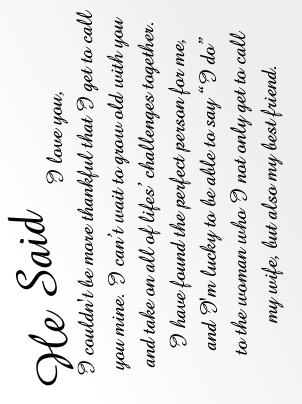 He Said
I love you,
I couldn't be more thankful that I get to call
you mine. I can't wait to grow old with you
and take on all of lifes' challenges together.
I have found the perfect person for me,
and I'm lucky to be able to say "I do"
to the woman who I not only get to call
my wife, but also my best friend.